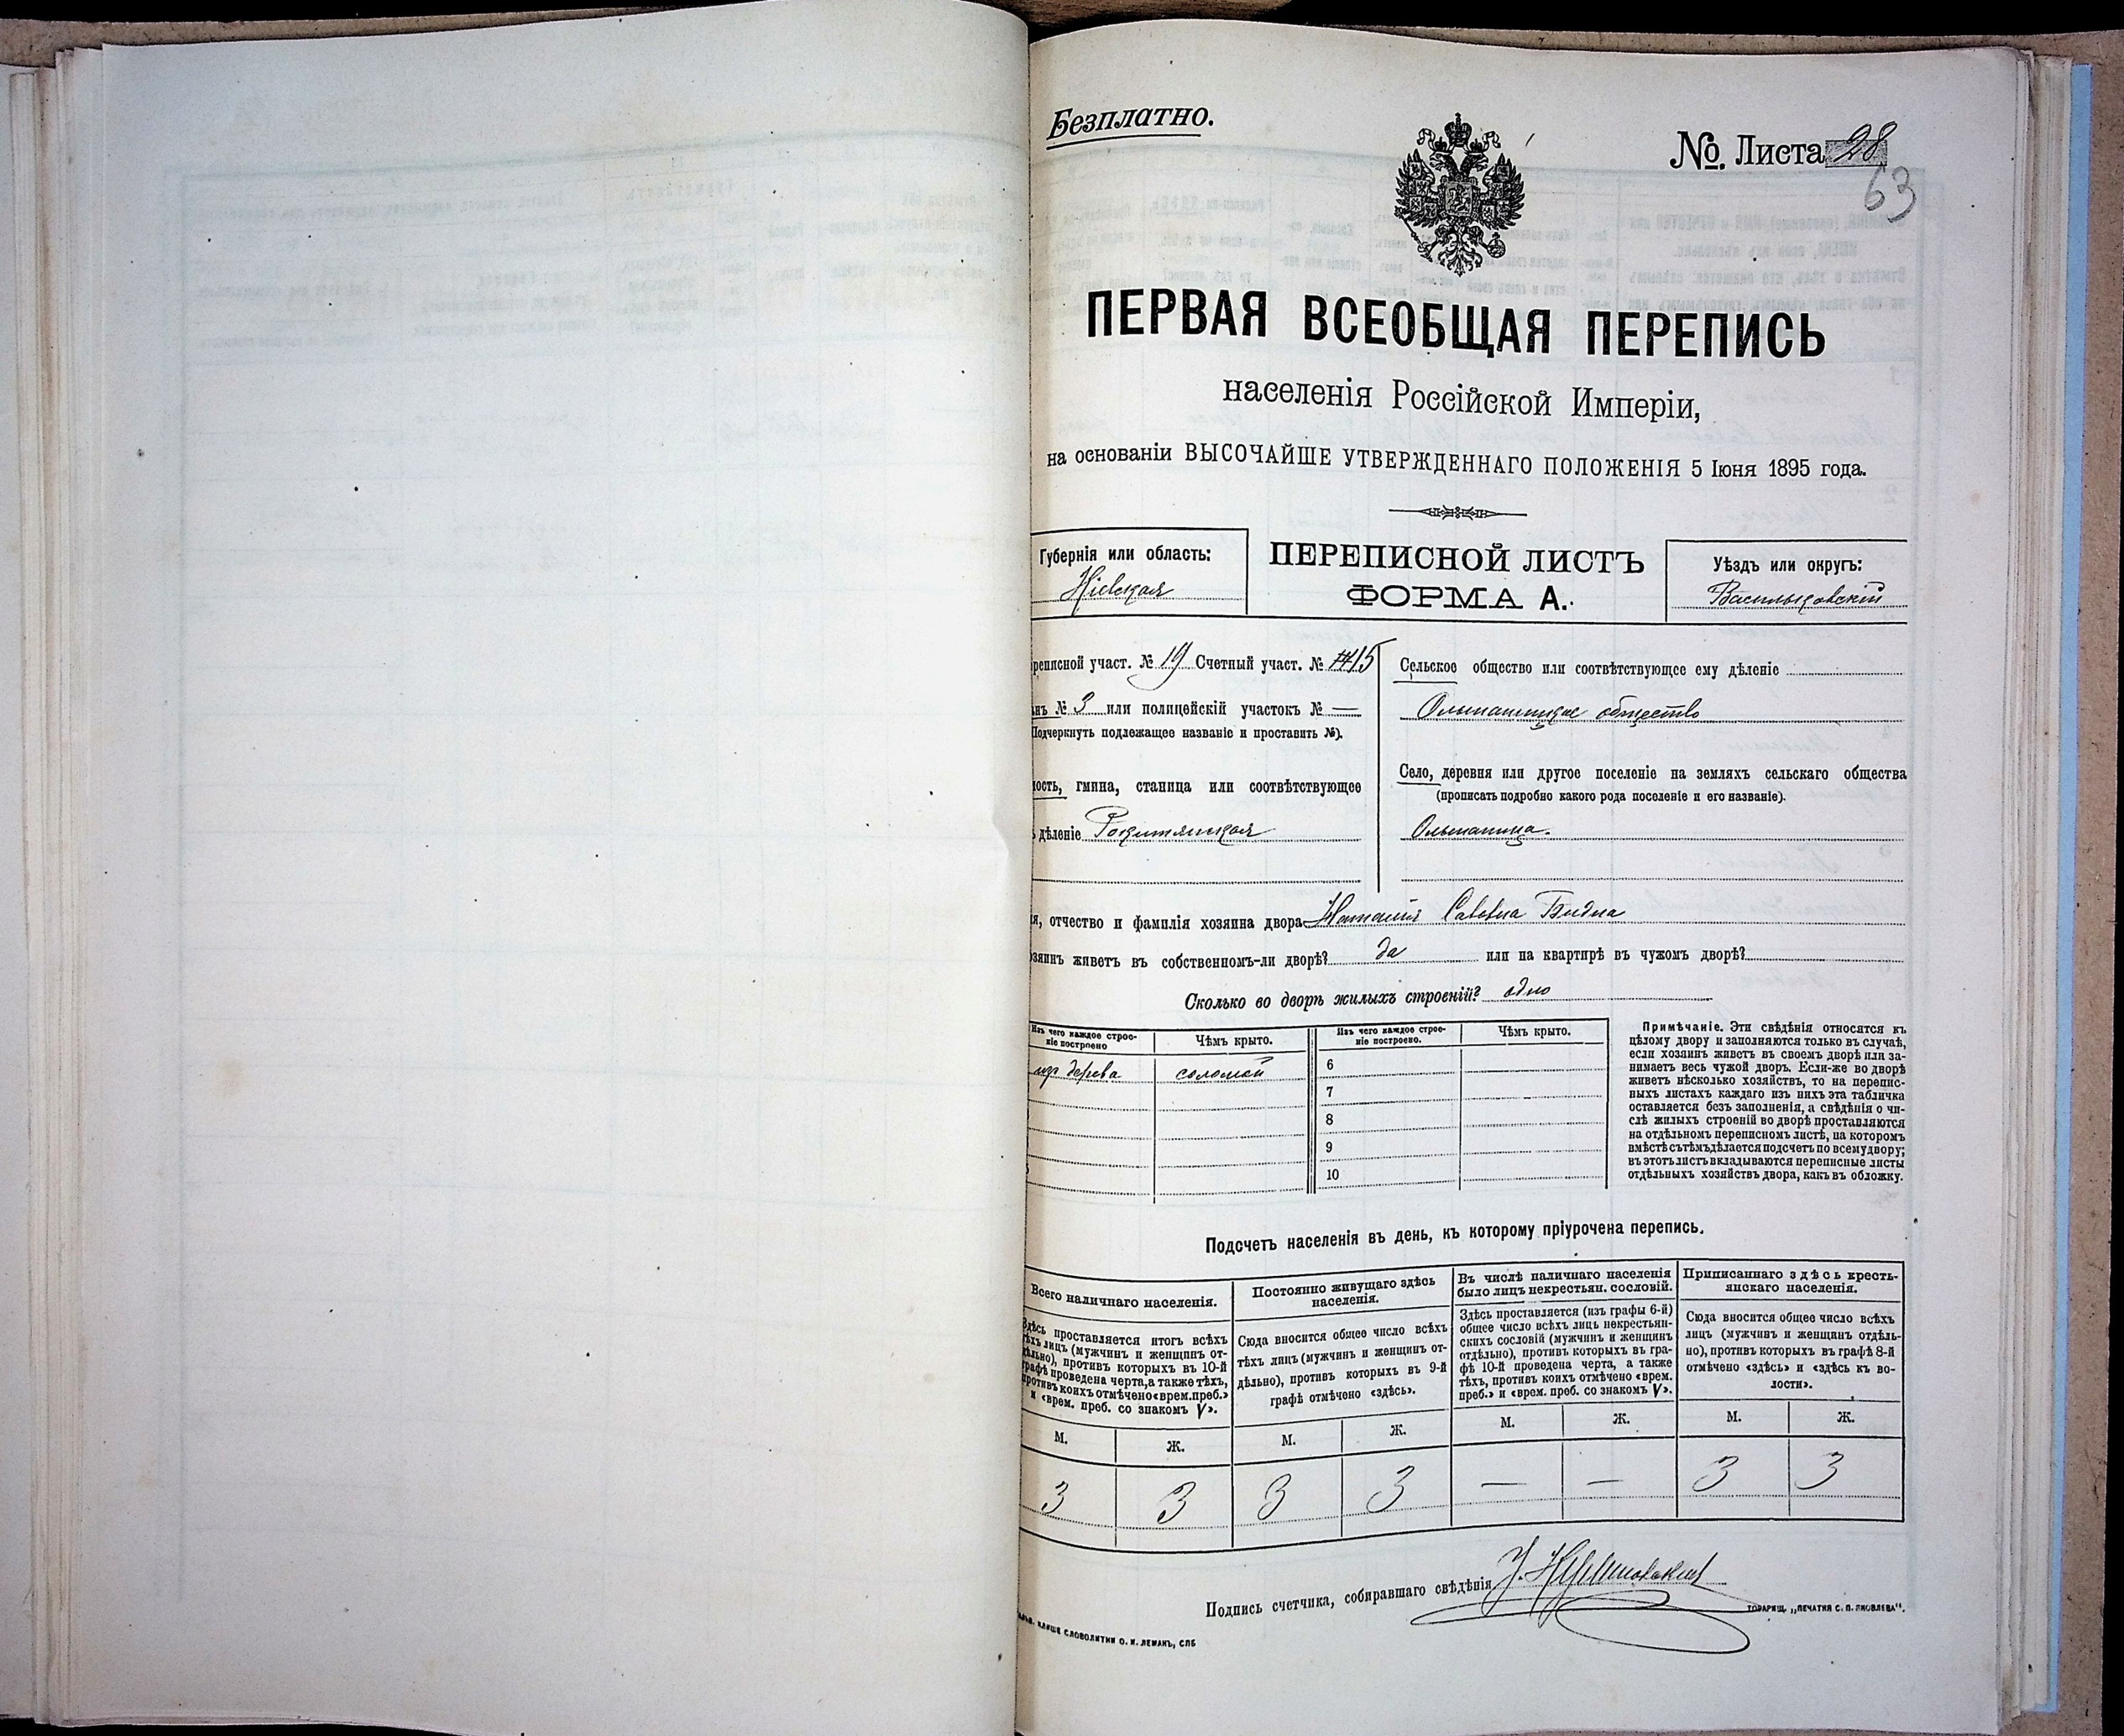 Безплатно.
№. Листа 28
63
ПЕРВАЯ ВСЕОБЩАЯ ПЕРЕПИСЬ
населенія Россійской Имперіи,
на основаніи ВЫСОЧАЙШЕ УТВЕРЖДЕННАГО ПОЛОЖЕНІЯ 5 Іюня 1895 года.
Губернія или область:
Кіевская
ПЕРЕПИСНОЙ ЛИСТЪ
ФОРМА А.
Уѣздъ или округъ:
Васильковскій
реписной участ. № 19 Счетный участ. № 15
нъ № 3 или полицейскій участокъ № —
Подчеркнуть подлежащее названіе и проставить №).
ость, гмина, станица или соотвѣтствующее
дѣленіе Рокитянская
Сельское общество или соотвѣтствующее ему дѣленіе
Ольшаницкое общество
Село, деревня или другое поселеніе на земляхъ сельскаго общества
(прописать подробно какого рода поселеніе и его названіе).
Ольшаница.
я, отчество и фамилія хозяина двора Наталія Саввивна Бидна
озяинъ живетъ въ собственномъ-ли дворѣ? да или на квартирѣ въ чужомъ дворѣ?
Сколько во дворѣ жилыхъ строеній? одно
Изъ чего каждое строе-
ніе построено
Чѣмъ крыто.
Изъ чего каждое строе-
ніе построено.
Чѣмъ крыто.
изъ дерева соломой
6
7
8
9
10
Примѣчаніе. Эти свѣдѣнія относятся къ
цѣлому двору и заполняются только въ случаѣ,
если хозяинъ живетъ въ своемъ дворѣ или за-
нимаетъ весь чужой дворъ. Если-же во дворѣ
живетъ нѣсколько хозяйствъ, то на перепис-
ныхъ листахъ каждаго изъ нихъ эта табличка
оставляется безъ заполненія, а свѣдѣнія о чи-
слѣ жилыхъ строеній во дворѣ проставляются
на отдѣльномъ переписномъ листѣ, на которомъ
вмѣстѣ съ тѣмъ дѣлается подсчетъ по всему двору;
въ этотъ листъ вкладываются переписные листы
отдѣльныхъ хозяйствъ двора, какъ въ обложку.
Подсчетъ населенія въ день, къ которому пріурочена перепись.
Всего наличнаго населенія.
Здѣсь проставляется итогъ всѣхъ
тѣхъ лицъ (мужчинъ и женщинъ от-
дѣльно), противъ которыхъ въ 10-й
графѣ проведена черта, а также тѣхъ,
противъ коихъ отмѣчено «врем. преб.»
и «врем. преб. со знакомъ V».
Постоянно живущаго здѣсь
населенія.
Сюда вносится общее число всѣхъ
тѣхъ лицъ (мужчинъ и женщинъ от-
дѣльно), противъ которыхъ въ 9-й
графѣ отмѣчено «здѣсь».
Въ числѣ наличнаго населенія
было лицъ некрестьян. сословій.
Здѣсь проставляется (изъ графы 6-й)
общее число всѣхъ лицъ некрестьян-
скихъ сословій (мужчинъ и женщинъ
отдѣльно), противъ которыхъ въ гра-
фѣ 10-й проведена черта, а также
тѣхъ, противъ коихъ отмѣчено «врем.
преб.» и «врем. преб. со знакомъ V».
Приписаннаго здѣсь кресть-
янскаго населенія.
Сюда вносится общее число всѣхъ
лицъ (мужчинъ и женщинъ отдѣль-
но), противъ которыхъ въ графѣ 8-й
отмѣчено «здѣсь» и «здѣсь къ во-
лости».
М. Ж. М. Ж. М. Ж. М. Ж.
3 3 3 3 — — 3 3
Подпись счетчика, собиравшаго свѣдѣнія
КЛИШЕ СЛОВОЛИТНИ О. И. ЛЕМАНЪ, СПБ
ТОВАРИЩ. „ПЕЧАТНЯ С. П. ЯКОВЛЕВА".